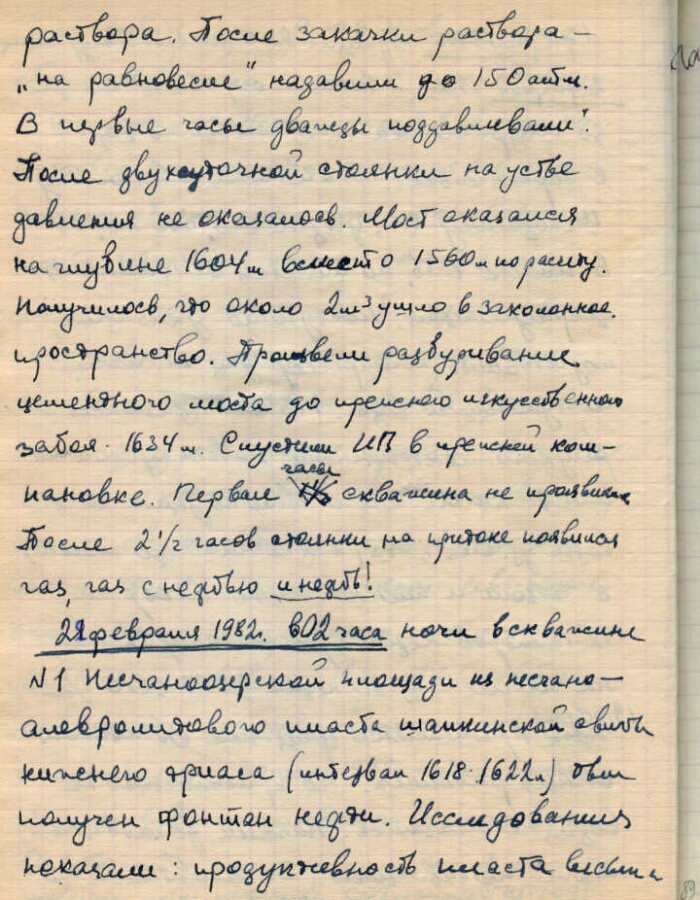 раствора. После закачки раствора –
„на равновесие" надавили до 150 атм.
В первые часы дважды поддавливали".
После двухсуточной стоянки на устье
давления не оказалось. Мост оказался
на глубине 1604 м вместо 1560 м по расчету.
Получилось, что около 2 м³ ушло в заколонное.
пространство. Произвели разбуривание
цементного моста до прежнего искусственного
забоя. 1634 м. Спустили ИП в прежней ком-
часы
пановке. Первые скважина не проявила
После 2 1/2 часов стоянки на притоке появился
газ, газ с нефтью и нефть!
22 февраля 1982 г. в 02 часа ночи в скважине
N 1 Песчаноозерской площади из песчано-
алевролитового пласта шапкинской свиты
нижнего триаса (интервал 1618-1622 м) был
получен фонтан нефти. Исследования
показали: продуктивность пласта весьма
89